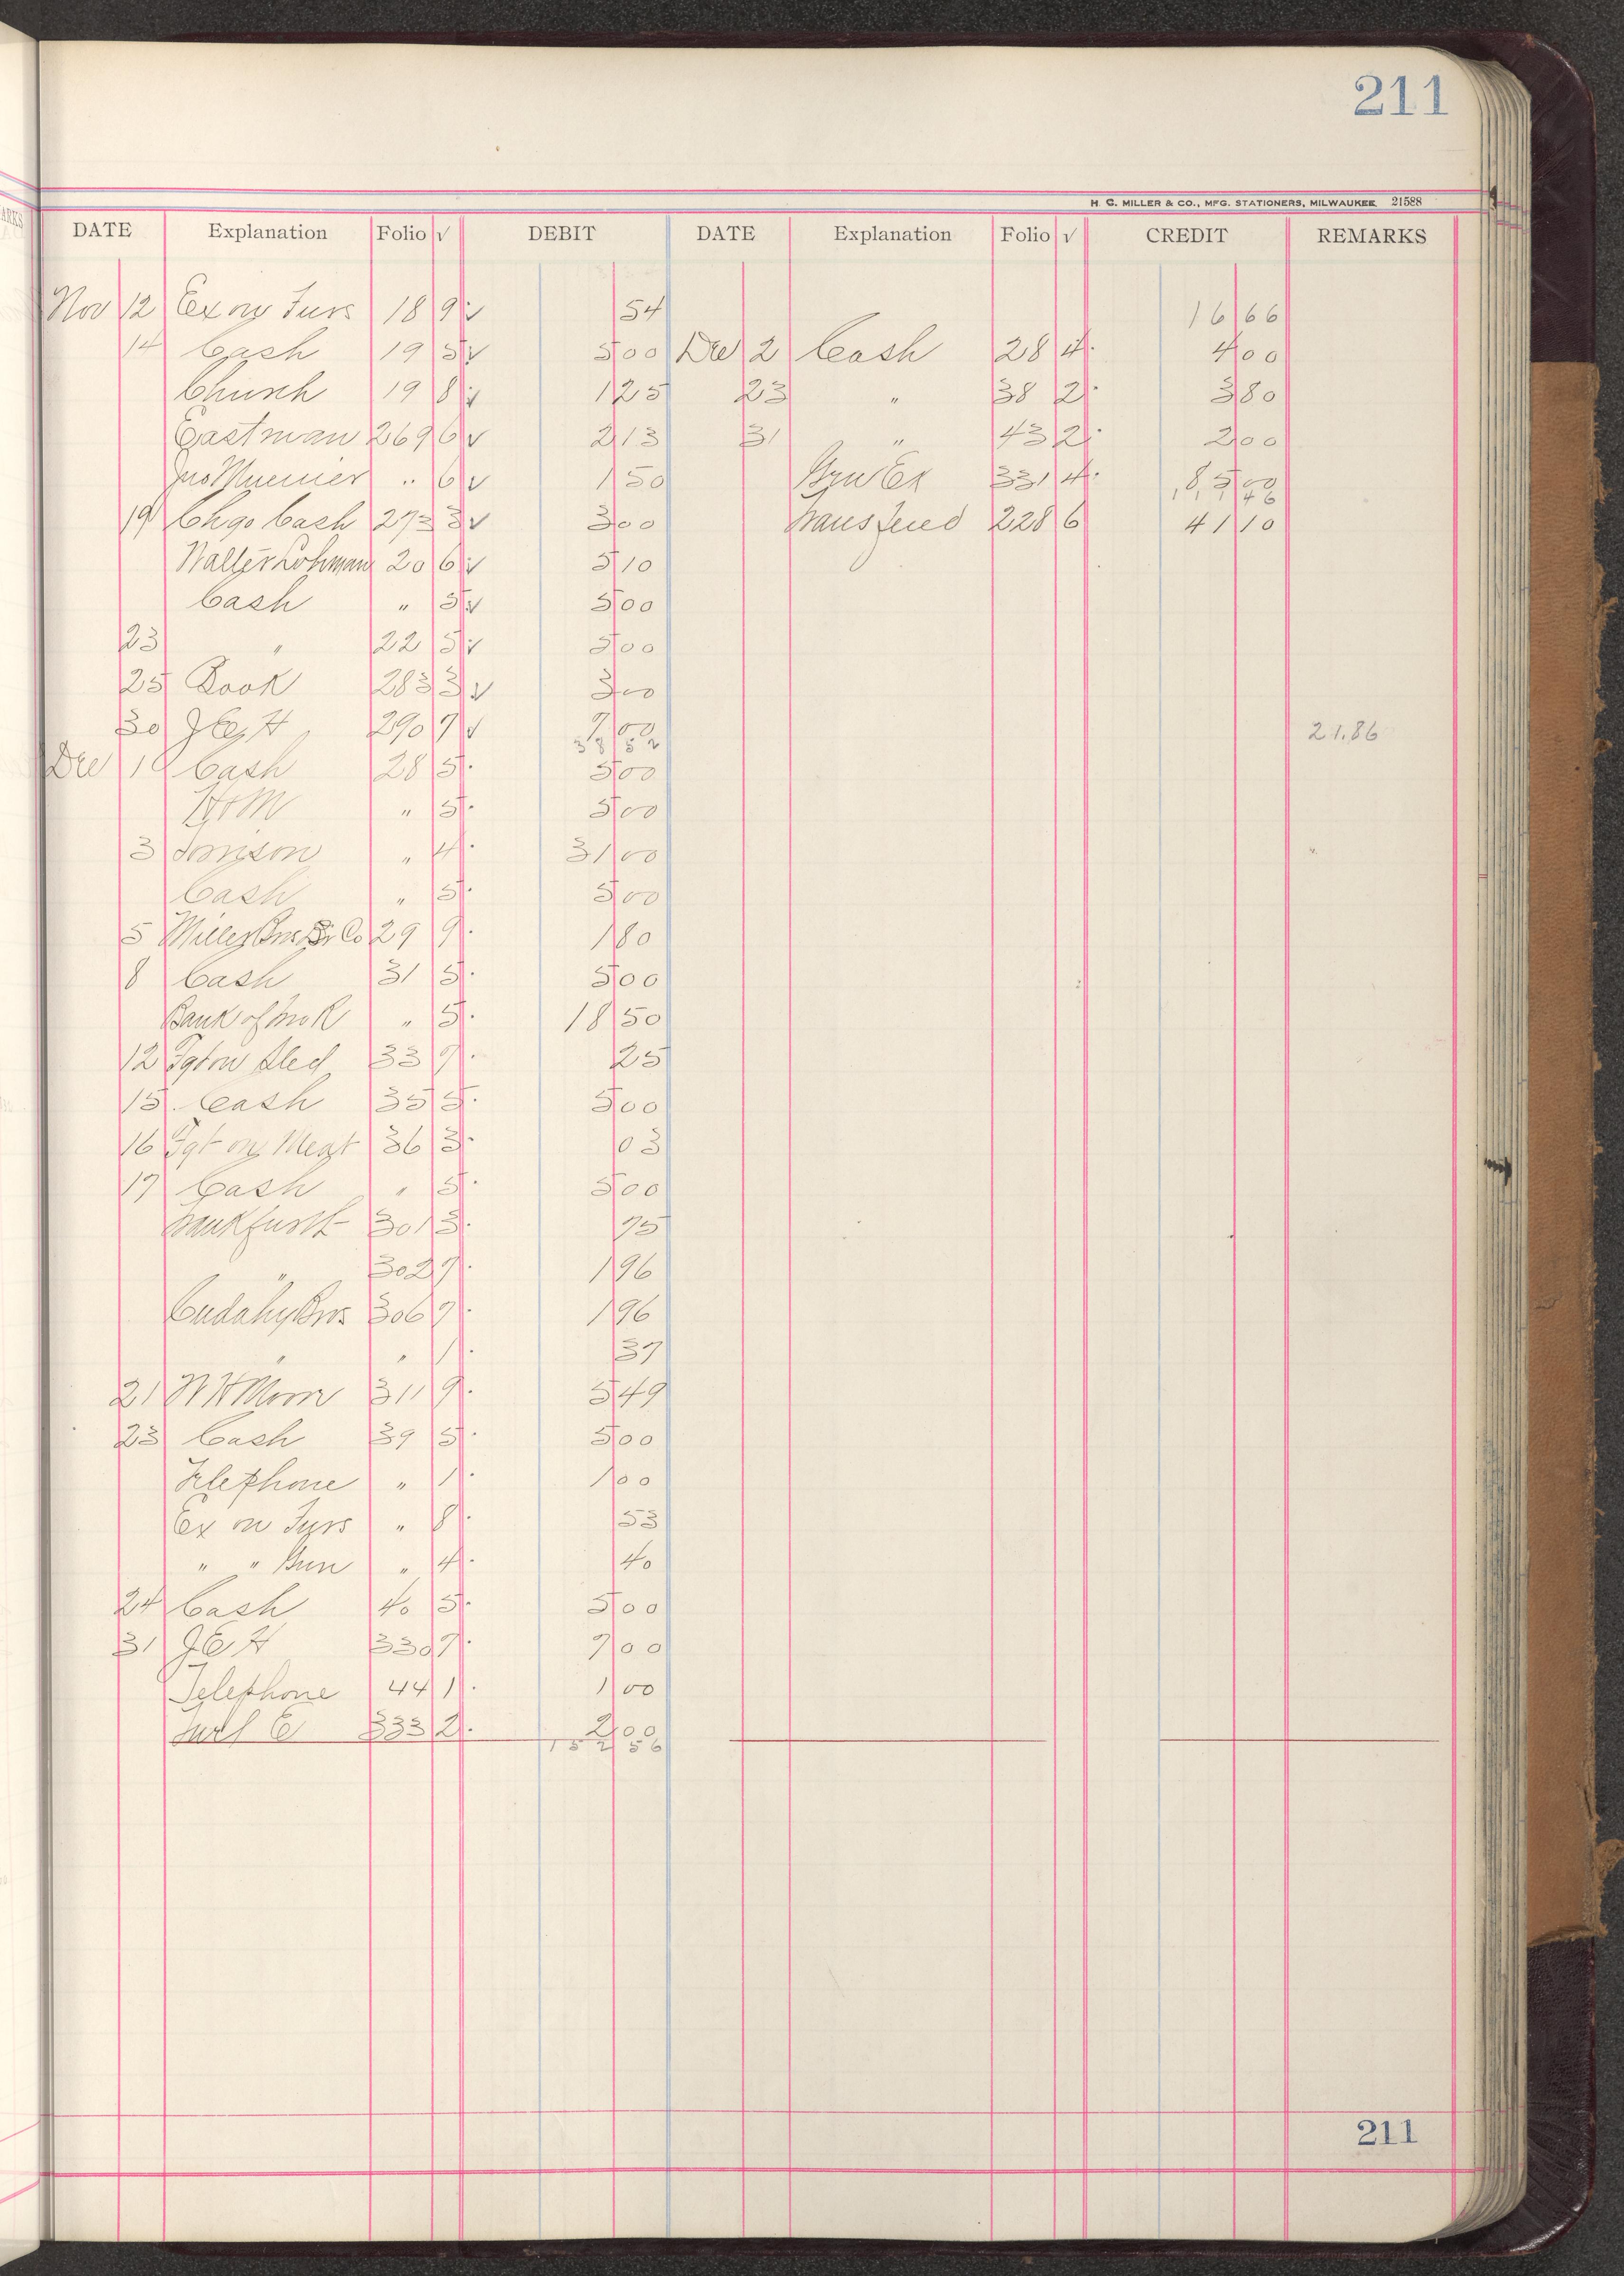 211
H. C. MILLER & CO., MFG. STATIONERS, MILWAUKEE 21588
DATE Explanation Folio √ DEBIT DATE Explanation Folio √ CREDIT REMARKS
Nov 12 Ex on Furs 18 9 √ 54 16 66
14 Cash 19 5 √ 5 00 Dec 2 Cash 28 4 4 00
Church 19 8 √ 1 25 23 " 38 2 3 80
Eastman 269 6 √ 2 13 31 " 43 2 2 00
Jno Muenier " 6 √ 1 50 331 4 8 5 00
19 Chgo Cash 273 3 √ 3 00 Transfered 228 6 41 10
Walter Lohman 20 6 √ 5 10
Cash " 5 √ 5 00
23 " 22 5 √ 5 00
25 Book 283 3 √ 3 00
30 290 7 √ 7 00 21.86
38 52
Dec 1 Cash 28 5 5 00
" 5 5 00
3 " 4 31 00
Cash " 5 5 00
5 Miller Bros & Co 29 9 1 80
8 Cash 31 5 5 00
Bank of " 5 18 50
12 Fgt on Sled 33 7 25
15 Cash 35 5 5 00
16 Fgt on Meat 36 3 03
17 Cash " 5 5 00
Frankfurth 301 3 75
" 302 7 1 96
Cudahy Bros 306 7 1 96
" " 1 37
21 311 9 5 49
23 Cash 39 5 5 00
Telephone " 1 1 00
Ex on Furs " 8 53
" " Gun " 4 40
24 Cash 40 5 5 00
31 330 7 7 00
Telephone 44 1 1 00
333 2 2 00
152 56
211